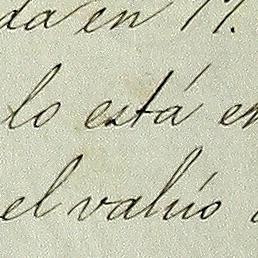 da en
lo está en
el valúo